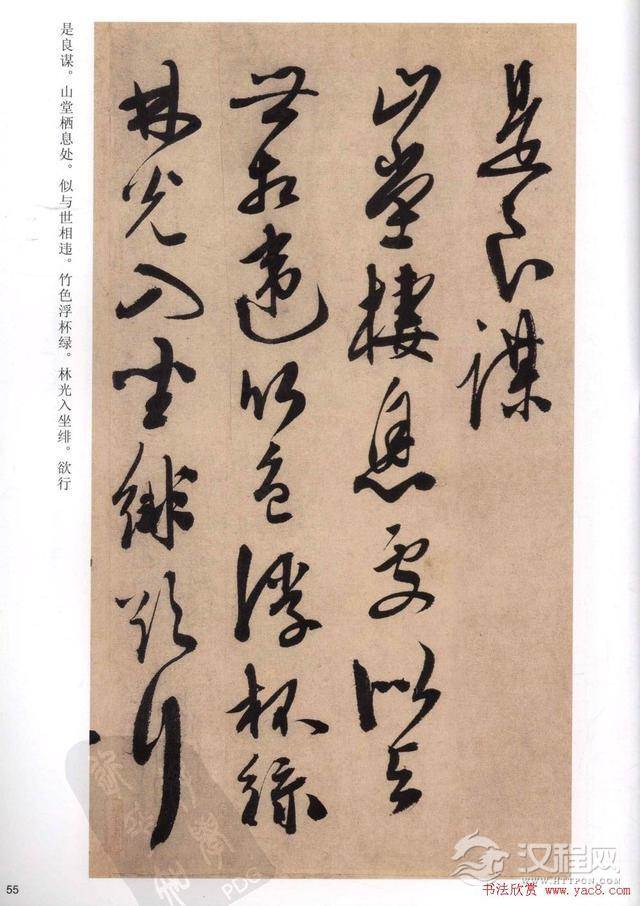 是良謀
山堂棲息處似与
世相違竹色浮杯綠
林光入坐緋欲行
是良谋。山堂栖息处。似与世相违。竹色浮杯绿。林光入坐绯。欲行
55
PDG
汉程网
HTTPCN.COM
书法欣赏 www.yac8.com